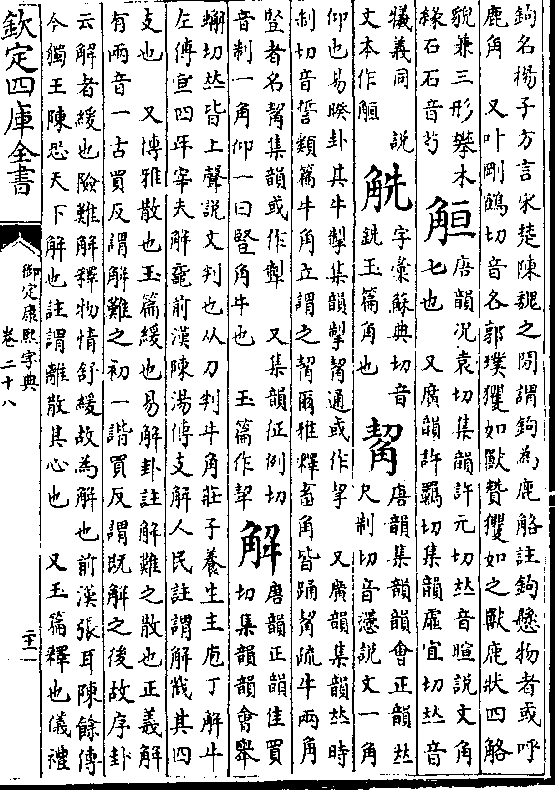 鉤名楊子方言宋楚陳魏之間謂鉤為鹿觡註鉤懸物者或呼
鹿角 又叶剛鶴切音各郭璞玃如獸贊玃如之獸鹿狀四觡
貌兼三形攀木
緣石石音芍
䚙
唐韻况袁切集韻許元切𠀤音暄說文角
七也 又廣韻許羈切集韻虛宜切𠀤音
犧義同 說
文本作
字彙蘇典切音
銑玉篇角也
觢
唐韻集韻韻會正韻𠀤
尺制切音懘說文一角
仰也易睽卦其牛掣集韻掣觢通或作挈 又廣韻集韻𠀤時
制切音誓類篇牛角立謂之觢爾雅釋畜角皆踊觢疏牛兩角
豎者名觢集韻或作 又集韻征例切
音制一角仰一曰豎角牛也 玉篇作挈
解
唐韻正韻佳買
切集韻韻會舉
蠏切𠀤皆上聲說文判也从刀判牛角莊子養生主庖丁解牛
左傳宣四年宰夫解黿前漢陳湯傳支解人民註謂解截其四
支也 又博雅散也玉篇緩也易解卦註解難之散也正義解
有兩音一古買反謂解難之初一諧買反謂既解之後故序卦
云解者緩也險難解釋物情舒緩故為解也前漢張耳陳餘傳
今獨王陳恐天下解也註謂離散其心也 又玉篇釋也儀禮
欽定四庫全書
御定康熙字典
卷二十八
二十一